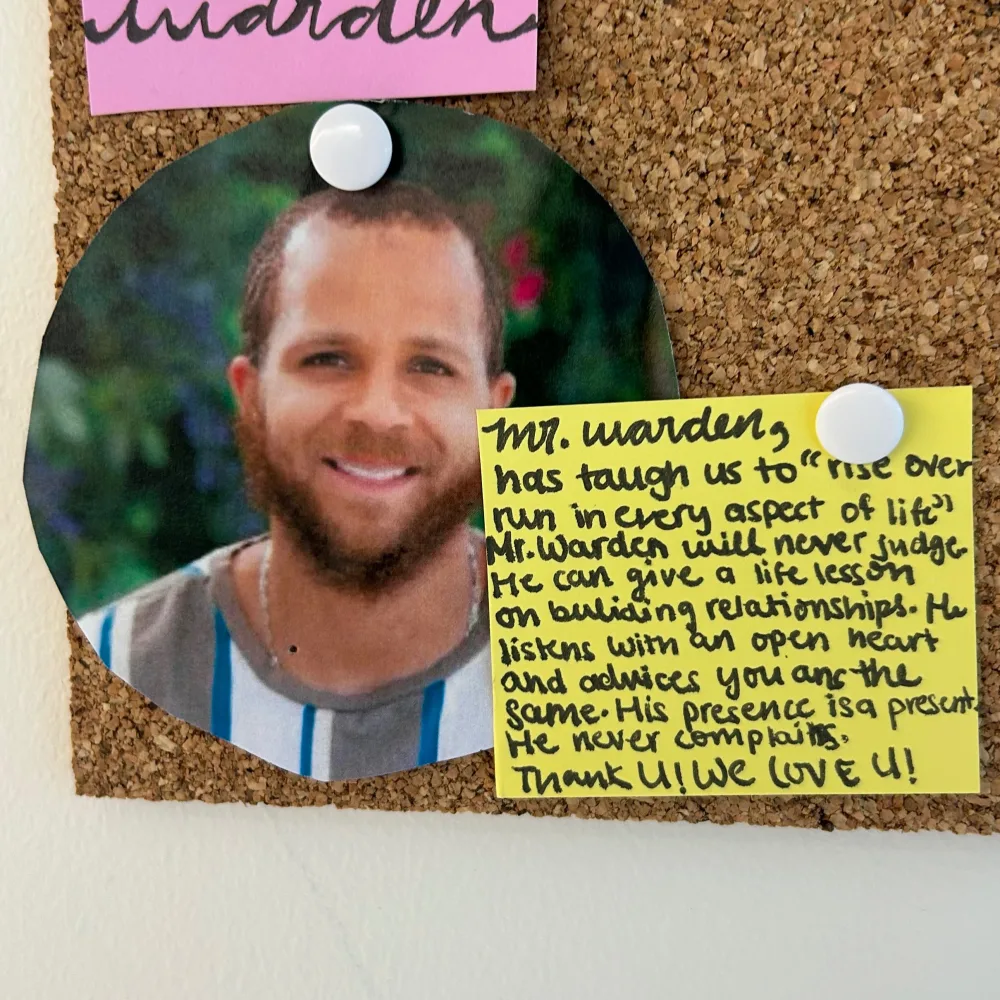 warden
Mr. warden,
has taugh us to "rise over
run in every aspect of life"
Mr. Warden will never judge.
He can give a life lesson
on buliding relationships. He
listens with an open heart
and advices you and the
same. His presence is a present.
He never complaits.
Thank U! We LOVE U!